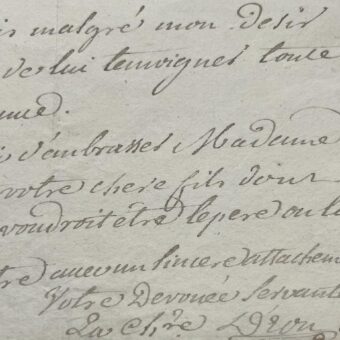 is malgré mon desir
de lui temoigner toute
nue.
d'ambrasser Madame
votre chere fils dont
voudroit être le pere ou la
tre avec un sincere attachem
Votre Devouée Servante
La Ch.re Deon